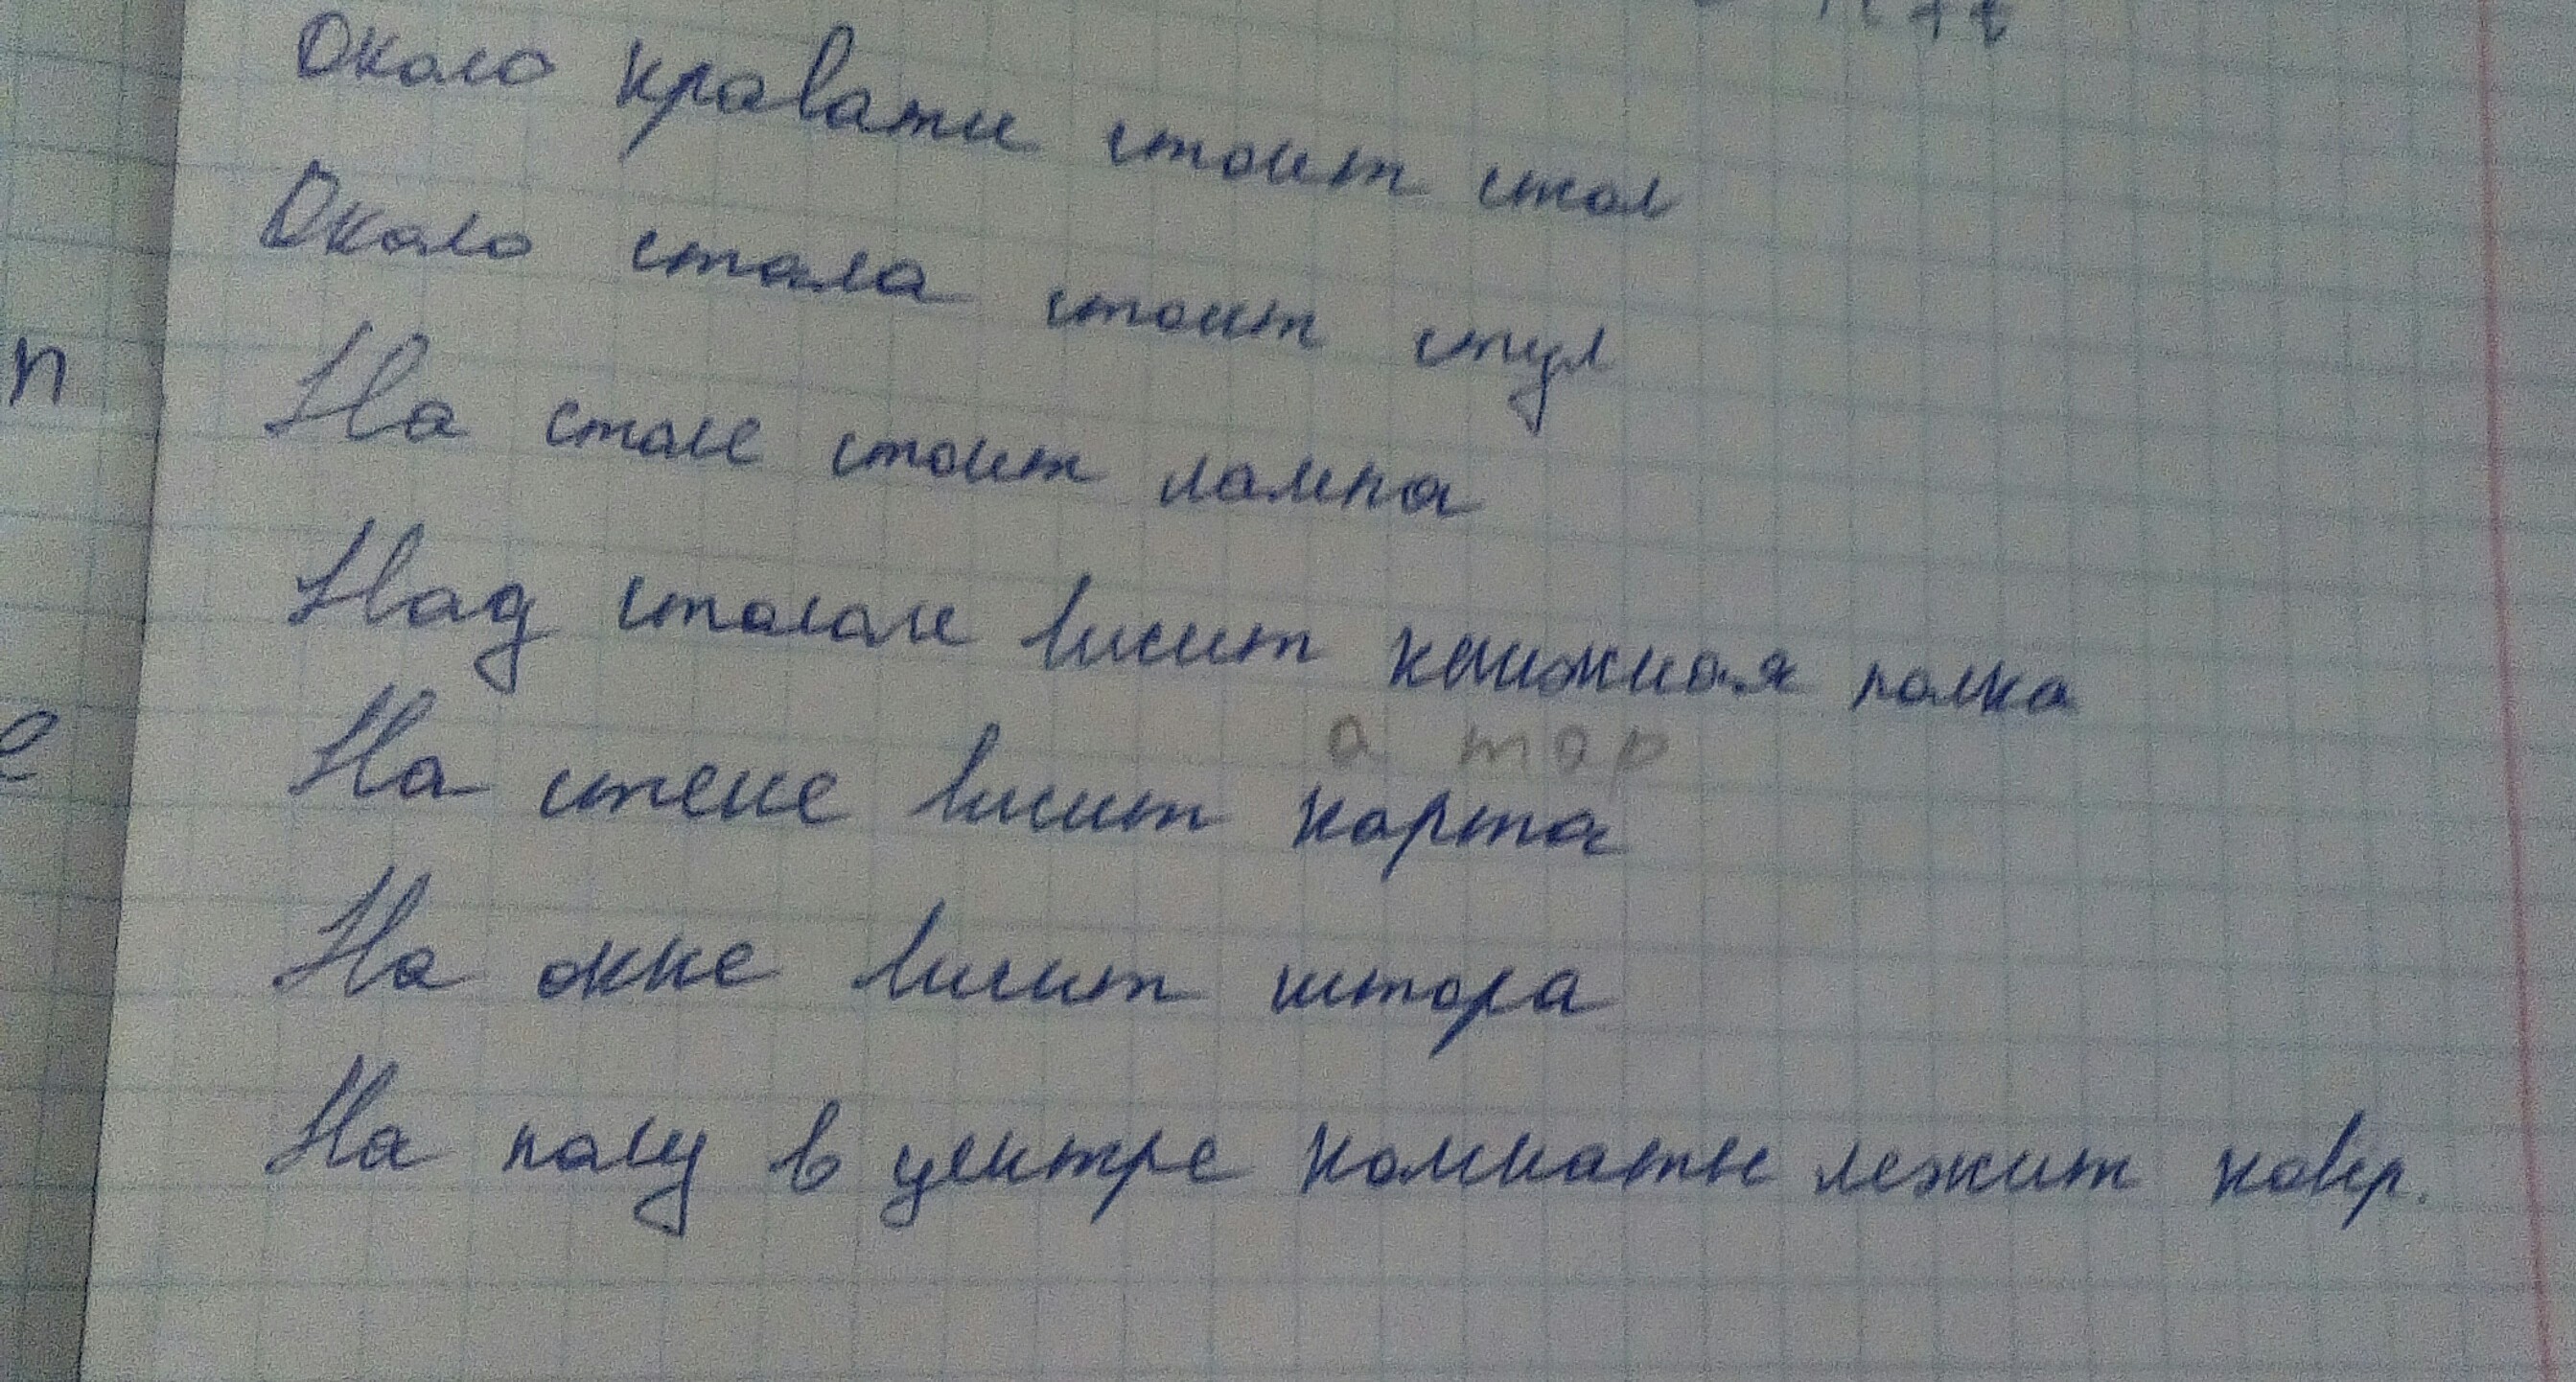 Около кравати стоит стол
Около стола стоит стул
На столе стоит лампа
Над столом висит книжная полка
а тар
На стене висит карта
На окне висит штора
На полу в центре комнаты лежит ковер.
п
е